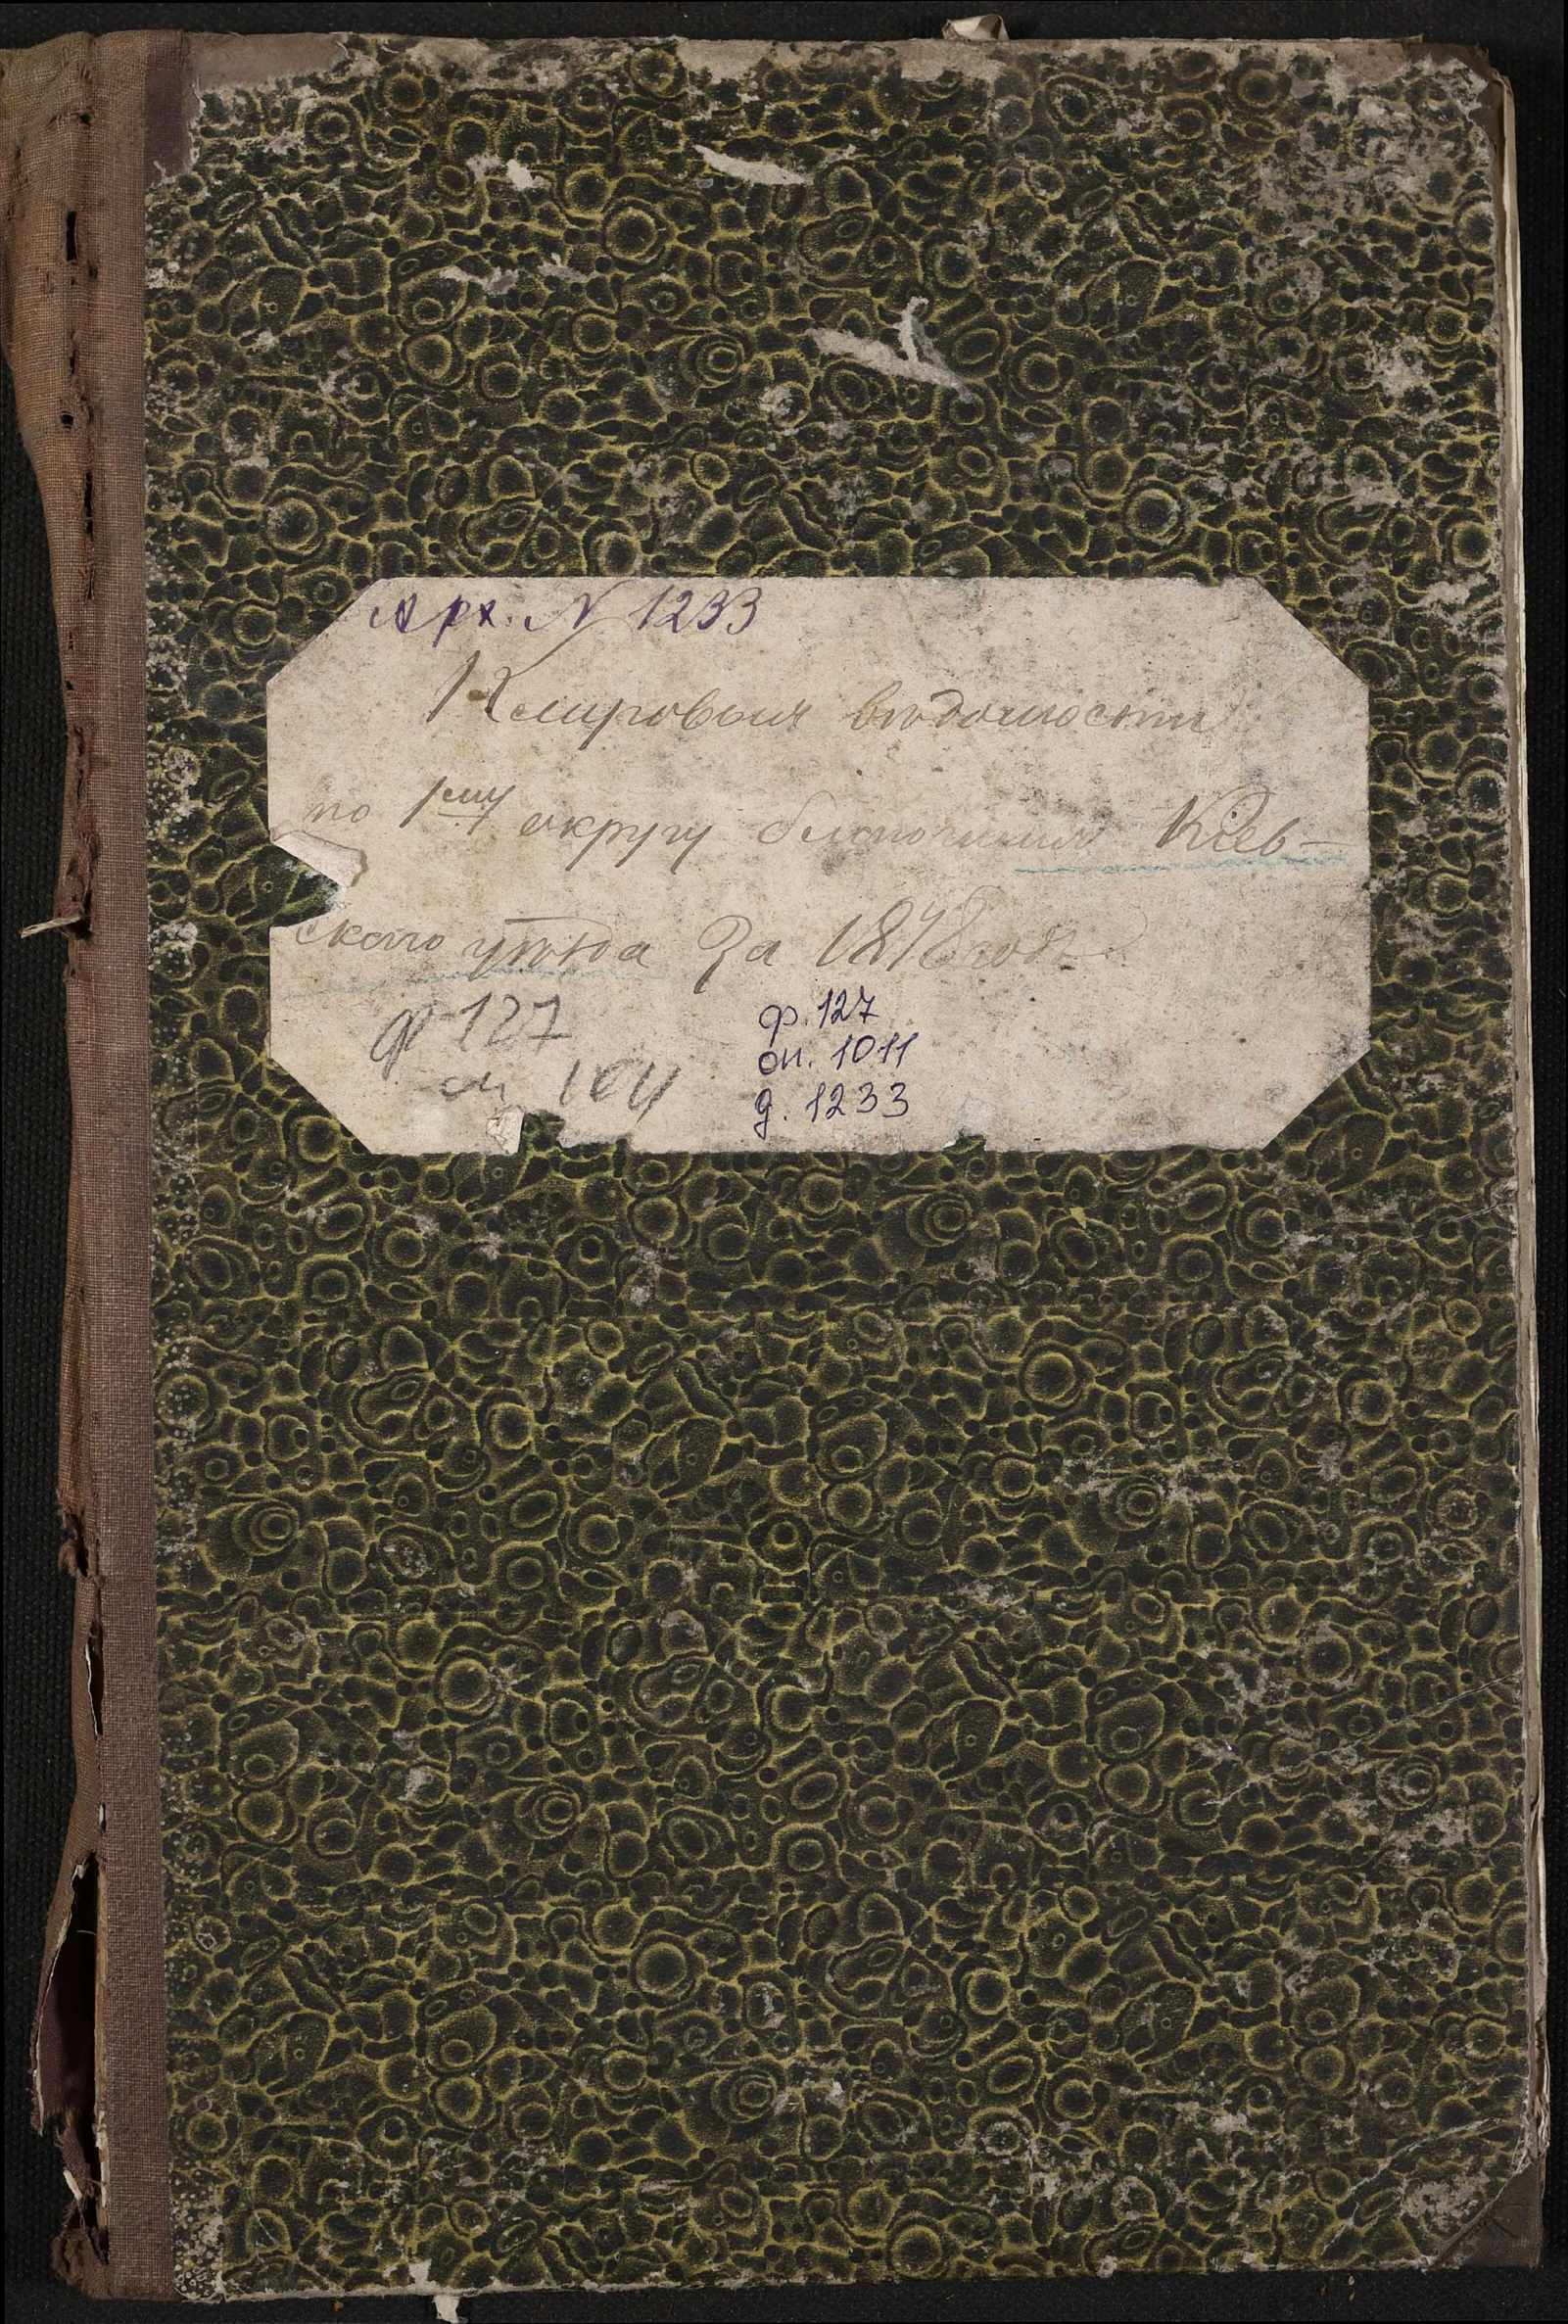 Арх. № 1233
Клировыя вѣдомости
по 1му округу благочинія Кіев-
скаго уѣзда за 1878 годъ
ф 127
оп 1011
ф. 127
оп. 1011
д. 1233